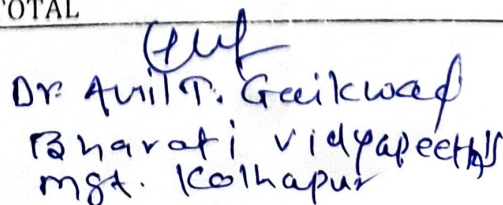 TOTAL
Dr. Anil T. Gaikwad
Bharati Vidyapeeth's
mgt. Kolhapur